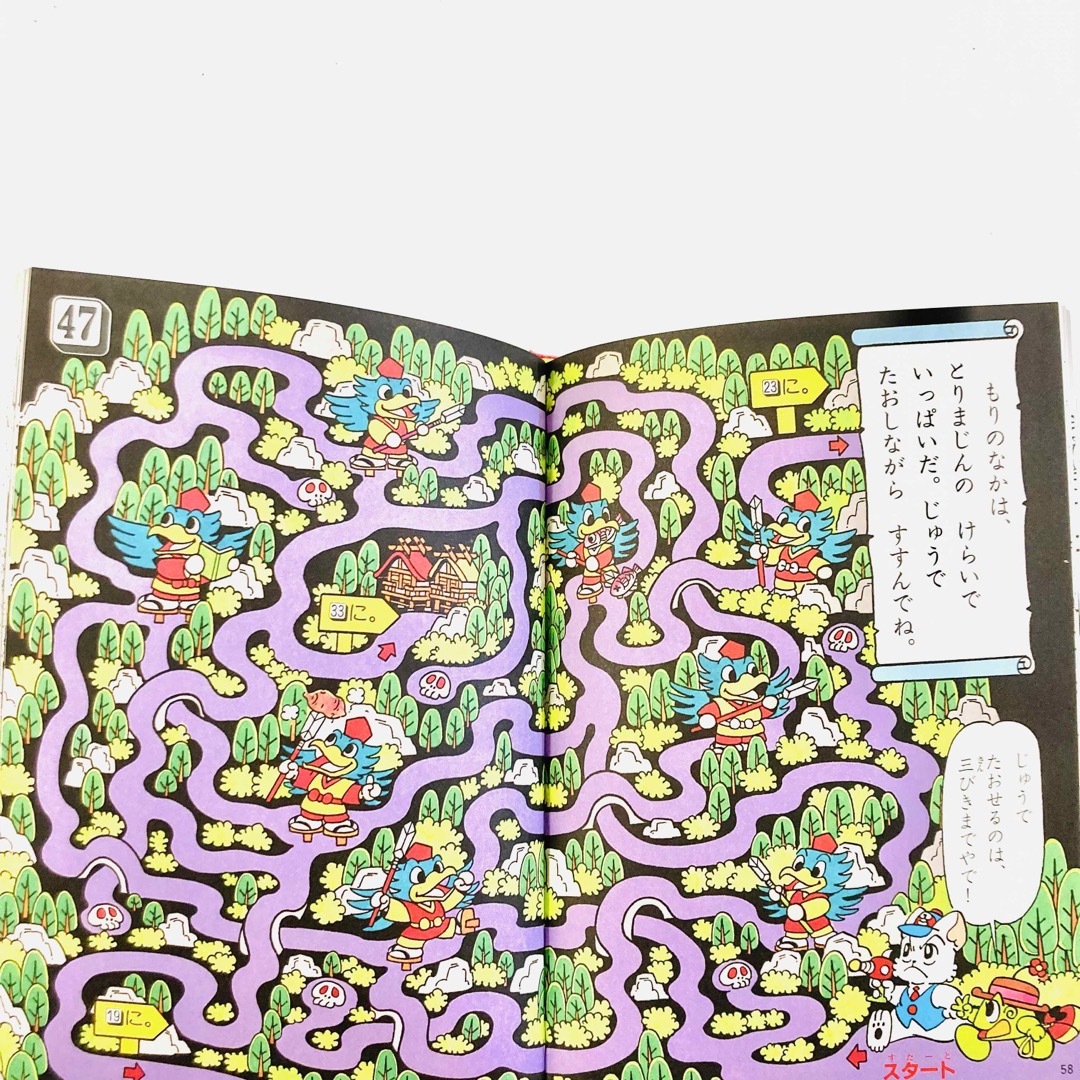 47
23に。
もりのなかは、
とりまじんの けらいで
いっぱいだ。じゅうで
たおしながら すすんでね。
33に。
じゅうで
たおせるのは、
三びきまでやで!
19に。
スタート
すたーと
58